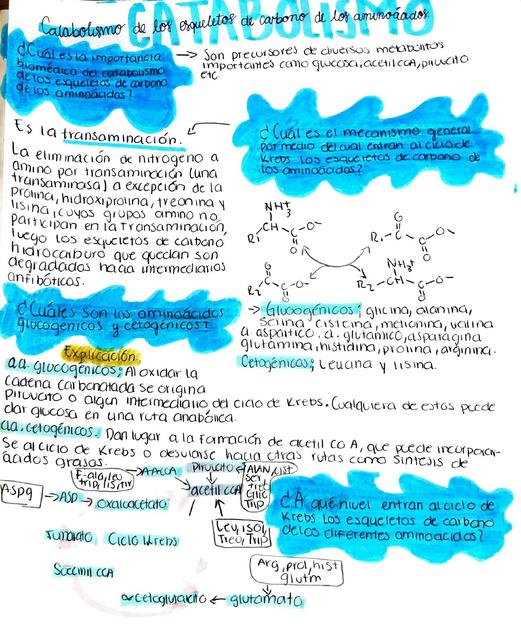 CATABOLISMO
Catabolismo de los esqueletos de carbono de los aminoácidos
¿Cuál es la importancia
biomédica del catabolismo
de los esqueletos de carbono
de los aminoácidos?
→ Son precursores de diversos metabolitos
importantes como glucosa, acetil coA, piruvato
etc.
Es la transaminación.
La eliminación de nitrogeno a
amino por transaminación (una
transaminasa) a excepción de la
prolina, hidroxiprolina, treonina y
lisina, cuyos grupos amino no
participan en la transaminación,
luego los esqueletos de carbono
hidrocarburo que quedan son
degradados hacia intermediarios
anfibóticos.
¿Cuál es el mecanismo general
por medio del cual entran al ciclo de
Krebs los esqueletos de carbono de
los aminoácidos?
NH+3
R1 CH C O-
O
R1 C C O-
O O
R2 C C O-
O O
NH3+
R2 CH C O-
O
¿Cuáles son los aminoácidos
glucogenicos y cetogénicos?
→ Glucogénicos; glicina, alanina,
serina, cisteina, metionina, valina
a. aspartico. a. glutámico, asparagina
glutamina, histidina, prolina, arginina.
Cetogénicos; Leucina y lisina.
Explicación.
aa. glucogénicos; Al oxidar la
cadena carbonatada se origina
piruvato o algun intermediario del ciclo de Krebs. Cualquiera de estos puede
dar glucosa en una ruta anabólica.
aa. cetogénicos. Dan lugar a la formación de acetil co A, que puede incorporar-
se al ciclo de Krebs o desviarse hacia otras rutas como sintesis de
ácidos grasos.
Piruvato
acetil coA
Aspg → ASP → Oxaloacetato
Leu, isol,
Treo, Trip
Fumarato Ciclo Krebs
Succinil coA
¿A que nivel entran al ciclo de
Krebs los esqueletos de carbono
de los diferentes aminoácidos?
Arg, prol, hist
glutm
α cetoglutarato ← glutamato